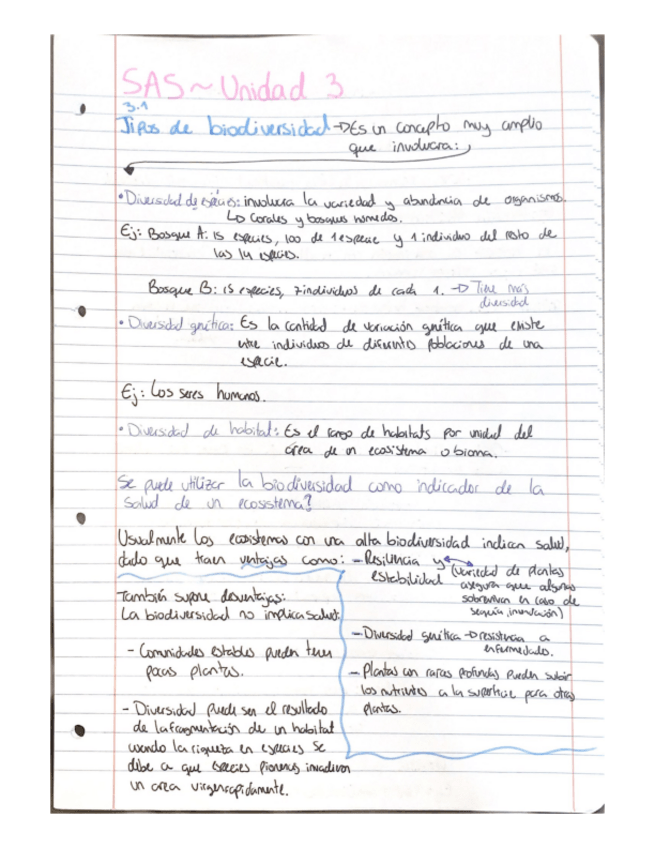 SAS ~ Unidad 3
3.1
Tipos de biodiversidad → Es un concepto muy amplio
que involucra:
• Diversidad de especies: involucra la variedad y abundancia de organismos.
↳ Corales y bosques húmedos.
Ej: Bosque A: 15 especies, 100 de 1 especie y 1 individuo del resto de
las 14 especies.
Bosque B: 15 especies, 7 individuos de cada 1. → Tiene más
diversidad
• Diversidad genética: Es la cantidad de variación genética que existe
entre individuos de diferentes poblaciones de una
especie.
Ej: Los seres humanos.
• Diversidad de habitat: Es el rango de habitats por unidad del
área de un ecosistema o bioma.
Se puede utilizar la biodiversidad como indicador de la
salud de un ecosistema?
Usualmente los ecosistemas con una alta biodiversidad indican salud,
dado que traen ventajas como:
- Resiliencia y
estabilidad
(variedad de plantas
asegura que algunas
sobrevivan en caso de
sequía, inundación)
- Diversidad genética → resistencia a
enfermedades.
- Plantas con raíces profundas pueden subir
los nutrientes a la superficie para otras
plantas.
También supone desventajas:
La biodiversidad no implica salud:
- Comunidades estables pueden tener
pocas plantas.
- Diversidad puede ser el resultado
de la fragmentación de un habitat
cuando la riqueza en especies se
debe a que especies pioneras invadieron
un area virgen rapidamente.